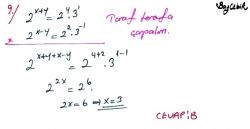 Bay Çetin
9.) 2^{x+y} = 2^4 · 3^1
Taraf tarafa
x 2^{x-y} = 2^2 · 3^{-1}
çarpalım.
2^{x+y+x-y} = 2^{4+2} · 3^{1-1}
2^{2x} = 2^6.
2x = 6 ⇒ x = 3
CEVAP: B